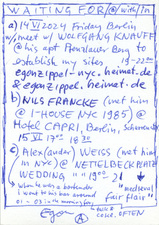 WAITING FOR @/with/in
a) 14 VI 2024 Friday Berlin
w/meet w/ WOLFGANG KNAUFF
@ his apt Prenzlauer Berg to
establish my sites 19-22 00
egonzippel-nyc.heimat.de
& egonzippel.heimat.de
b) NILS FRANCKE (met him
@ I-HOUSE NYC 1985) @
Hotel CAPRI, Berlin,
15 VI 18 30
c) Alex(ander) WEISS (met him
in NYC) @ NETTELBECKPLATZ
WEDDING "19 00
when he was a bartender
I went to his bar around
01 - 03 in the morning for
"medieval
fair flair"
COKE. OFTEN
Egon
A